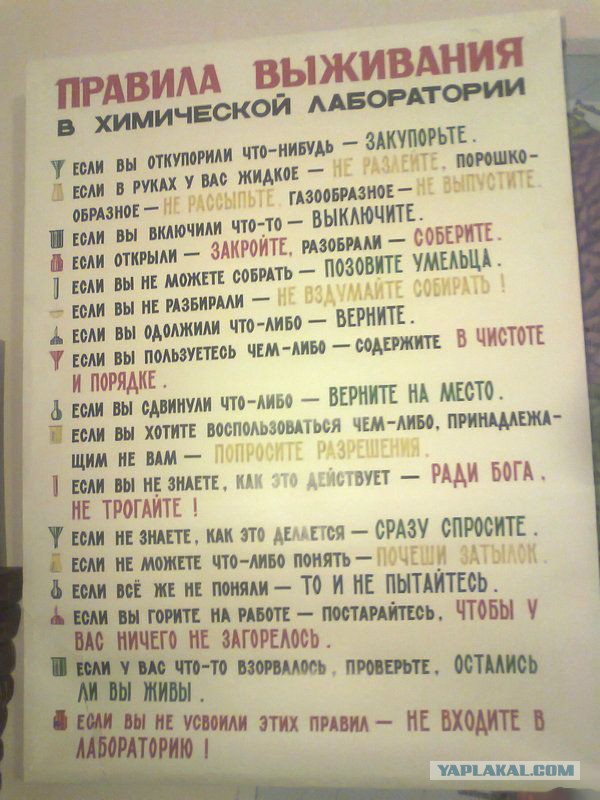 ПРАВИЛА ВЫЖИВАНИЯ
В ХИМИЧЕСКОЙ ЛАБОРАТОРИИ
ЕСЛИ ВЫ ОТКУПОРИЛИ ЧТО-НИБУДЬ — ЗАКУПОРЬТЕ.
ЕСЛИ В РУКАХ У ВАС ЖИДКОЕ — НЕ РАЗЛЕЙТЕ, ПОРОШКО-
ОБРАЗНОЕ — НЕ РАССЫПЬТЕ, ГАЗООБРАЗНОЕ — НЕ ВЫПУСТИТЕ.
ЕСЛИ ВЫ ВКЛЮЧИЛИ ЧТО-ТО — ВЫКЛЮЧИТЕ.
ЕСЛИ ОТКРЫЛИ — ЗАКРОЙТЕ, РАЗОБРАЛИ — СОБЕРИТЕ.
ЕСЛИ ВЫ НЕ МОЖЕТЕ СОБРАТЬ — ПОЗОВИТЕ УМЕЛЬЦА.
ЕСЛИ ВЫ НЕ РАЗБИРАЛИ — НЕ ВЗДУМАЙТЕ СОБИРАТЬ!
ЕСЛИ ВЫ ОДОЛЖИЛИ ЧТО-ЛИБО — ВЕРНИТЕ.
ЕСЛИ ВЫ ПОЛЬЗУЕТЕСЬ ЧЕМ-ЛИБО — СОДЕРЖИТЕ В ЧИСТОТЕ
И ПОРЯДКЕ.
ЕСЛИ ВЫ СДВИНУЛИ ЧТО-ЛИБО — ВЕРНИТЕ НА МЕСТО.
ЕСЛИ ВЫ ХОТИТЕ ВОСПОЛЬЗОВАТЬСЯ ЧЕМ-ЛИБО, ПРИНАДЛЕЖА-
ЩИМ НЕ ВАМ — ПОПРОСИТЕ РАЗРЕШЕНИЯ.
ЕСЛИ ВЫ НЕ ЗНАЕТЕ, КАК ЭТО ДЕЙСТВУЕТ — РАДИ БОГА,
НЕ ТРОГАЙТЕ!
ЕСЛИ НЕ ЗНАЕТЕ, КАК ЭТО ДЕЛАЕТСЯ — СРАЗУ СПРОСИТЕ.
ЕСЛИ НЕ МОЖЕТЕ ЧТО-ЛИБО ПОНЯТЬ — ПОЧЕШИ ЗАТЫЛОК.
ЕСЛИ ВСЁ ЖЕ НЕ ПОНЯЛИ — ТО И НЕ ПЫТАЙТЕСЬ.
ЕСЛИ ВЫ ГОРИТЕ НА РАБОТЕ — ПОСТАРАЙТЕСЬ, ЧТОБЫ У
ВАС НИЧЕГО НЕ ЗАГОРЕЛОСЬ.
ЕСЛИ У ВАС ЧТО-ТО ВЗОРВАЛОСЬ, ПРОВЕРЬТЕ, ОСТАЛИСЬ
ЛИ ВЫ ЖИВЫ.
ЕСЛИ ВЫ НЕ УСВОИЛИ ЭТИХ ПРАВИЛ — НЕ ВХОДИТЕ В
ЛАБОРАТОРИЮ!
YAPLAKAL.COM